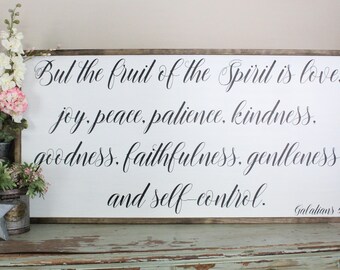 But the fruit of the Spirit is love,
joy, peace, patience, kindness,
goodness, faithfulness, gentleness
and self-control.
Galatians